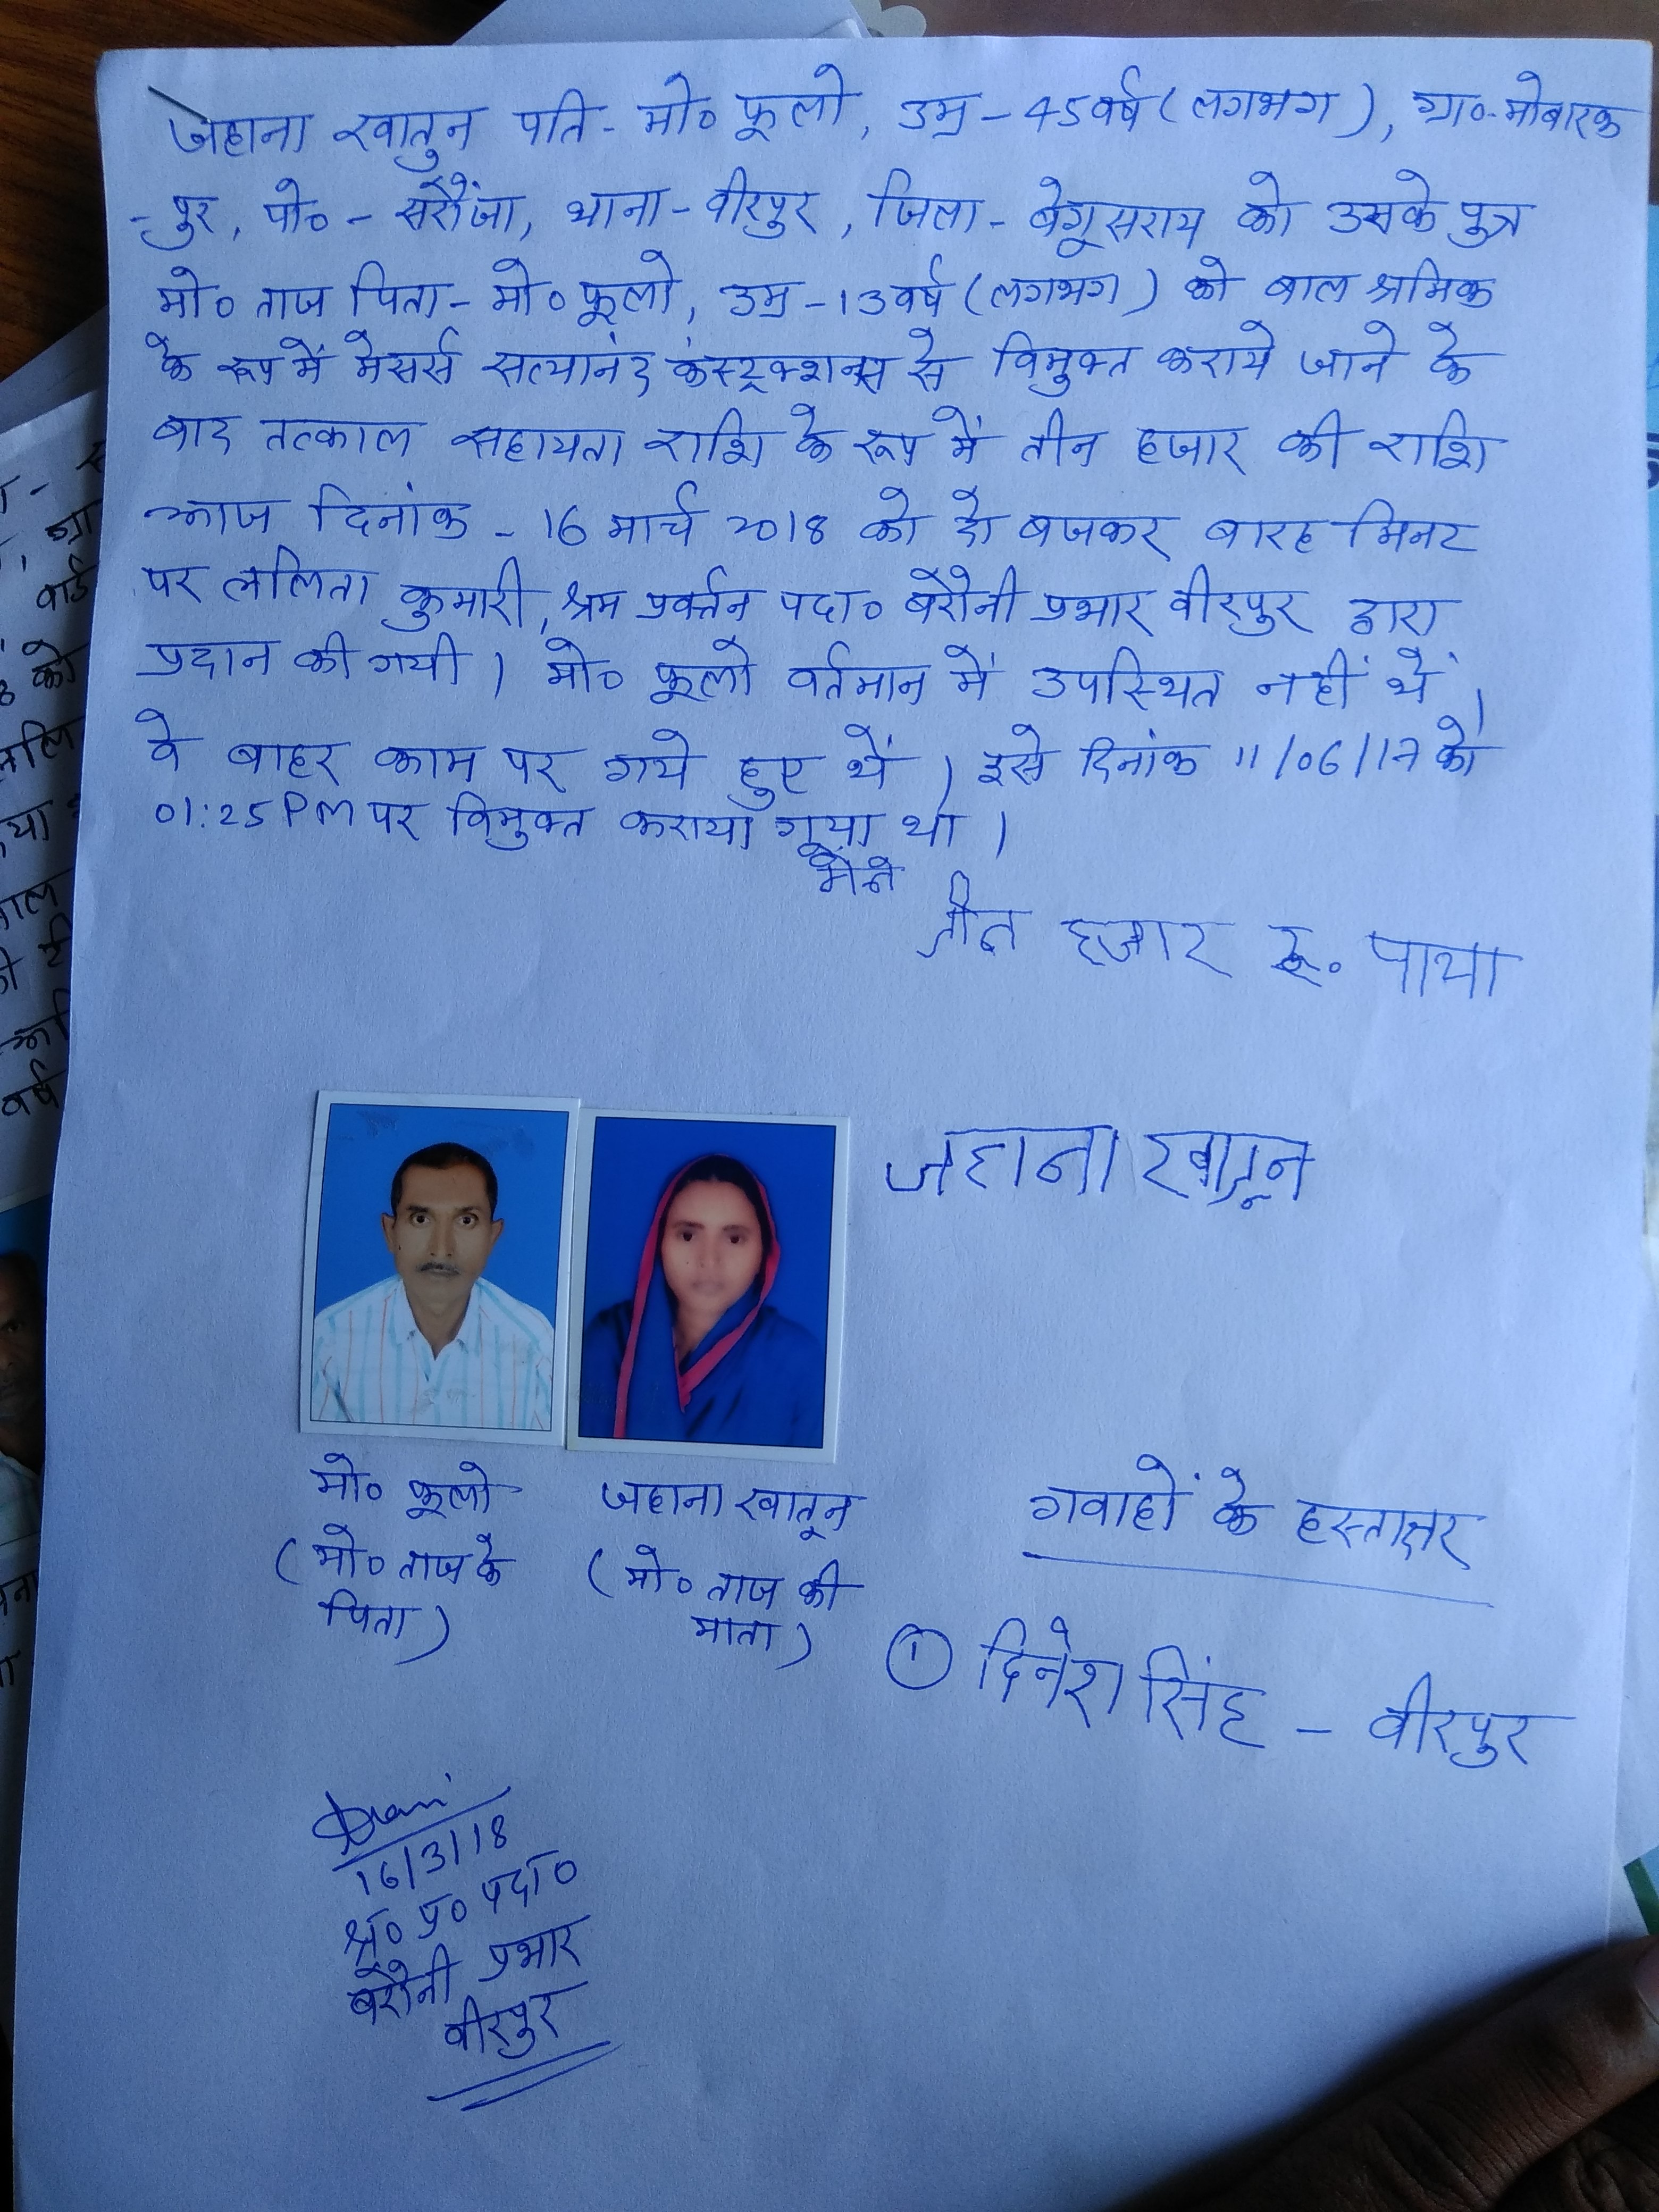 जहाना खातुन पति - मो० फूलो, उम्र - 45 वर्ष (लगभग), ग्रा०-मोबारक
-पुर, पो० - सरौंजा, थाना - वीरपुर, जिला - बेगूसराय को उसके पुत्र
मो० ताज पिता - मो० फूलो, उम्र - 13 वर्ष (लगभग) को बाल श्रमिक
के रूप में मेसर्स सत्यानंद कंस्ट्रक्शन्स से विमुक्त कराये जाने के
बाद तत्काल सहायता राशि के रूप में तीन हजार की राशि
आज दिनांक - 16 मार्च 2018 को दो बजकर बारह मिनट
पर ललिता कुमारी, श्रम प्रवर्तन पदा० बरौनी प्रभार वीरपुर द्वारा
प्रदान की गयी। मो० फूलो वर्तमान में उपस्थित नहीं थें,
वे बाहर काम पर गये हुए थें। इसे दिनांक 11/06/17 को
01:25 PM पर विमुक्त कराया गया था।
मैने
तीन हजार रू. पाया
जहाना खातून
मो० फूलो
(मो० ताज के
पिता)
जहाना खातून
(मो० ताज की
माता)
गवाहों के हस्ताक्षर
① दिनेश सिंह - वीरपुर
16/3/18
श्र० प्र० पदा०
बरौनी प्रभार
वीरपुर